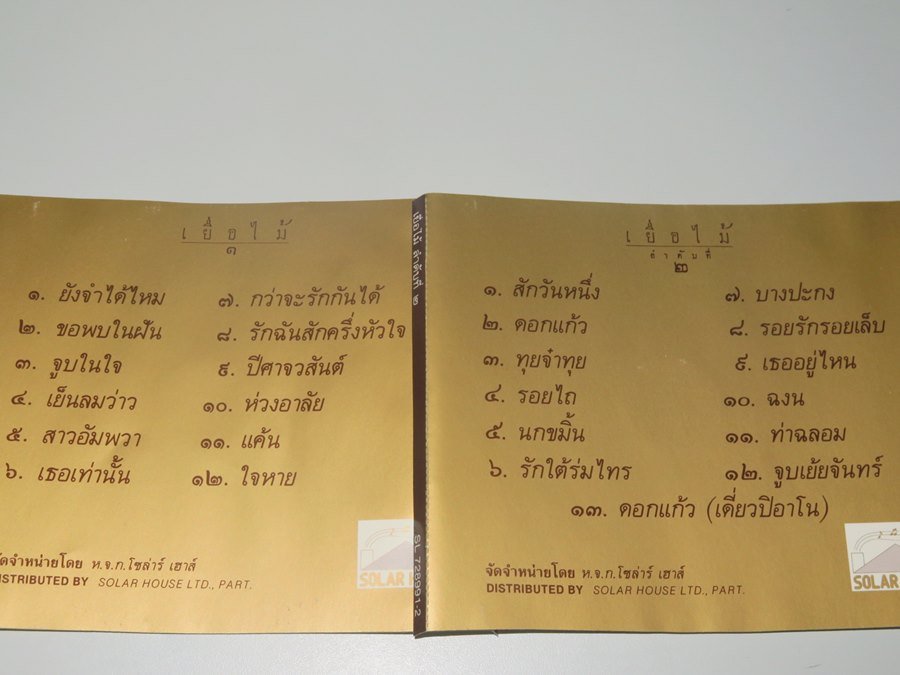 เยื่อไม้
๑
๑. ยังจำได้ไหม
๒. ขอพบในฝัน
๓. จูบในใจ
๔. เย็นลมว่าว
๕. สาวอัมพวา
๖. เธอเท่านั้น
๗. กว่าจะรักกันได้
๘. รักฉันสักครึ่งหัวใจ
๙. ปีศาจวสันต์
๑๐. ห่วงอาลัย
๑๑. แค้น
๑๒. ใจหาย
จัดจำหน่ายโดย ห.จ.ก.โซล่าร์ เฮาส์
DISTRIBUTED BY SOLAR HOUSE LTD., PART.
SOLAR H
เยื่อไม้ ลำดับที่ ๒
SL 728991-2
เยื่อไม้
ลำดับที่
๒
๑. สักวันหนึ่ง
๒. ดอกแก้ว
๓. ทุยจ๋าทุย
๔. รอยไถ
๕. นกขมิ้น
๖. รักใต้ร่มไทร
๗. บางปะกง
๘. รอยรักรอยเล็บ
๙. เธออยู่ไหน
๑๐. ฉงน
๑๑. ท่าฉลอม
๑๒. จูบเย้ยจันทร์
๑๓. ดอกแก้ว (เดี่ยวปิอาโน)
จัดจำหน่ายโดย ห.จ.ก.โซล่าร์ เฮาส์
DISTRIBUTED BY SOLAR HOUSE LTD., PART.
SOLAR